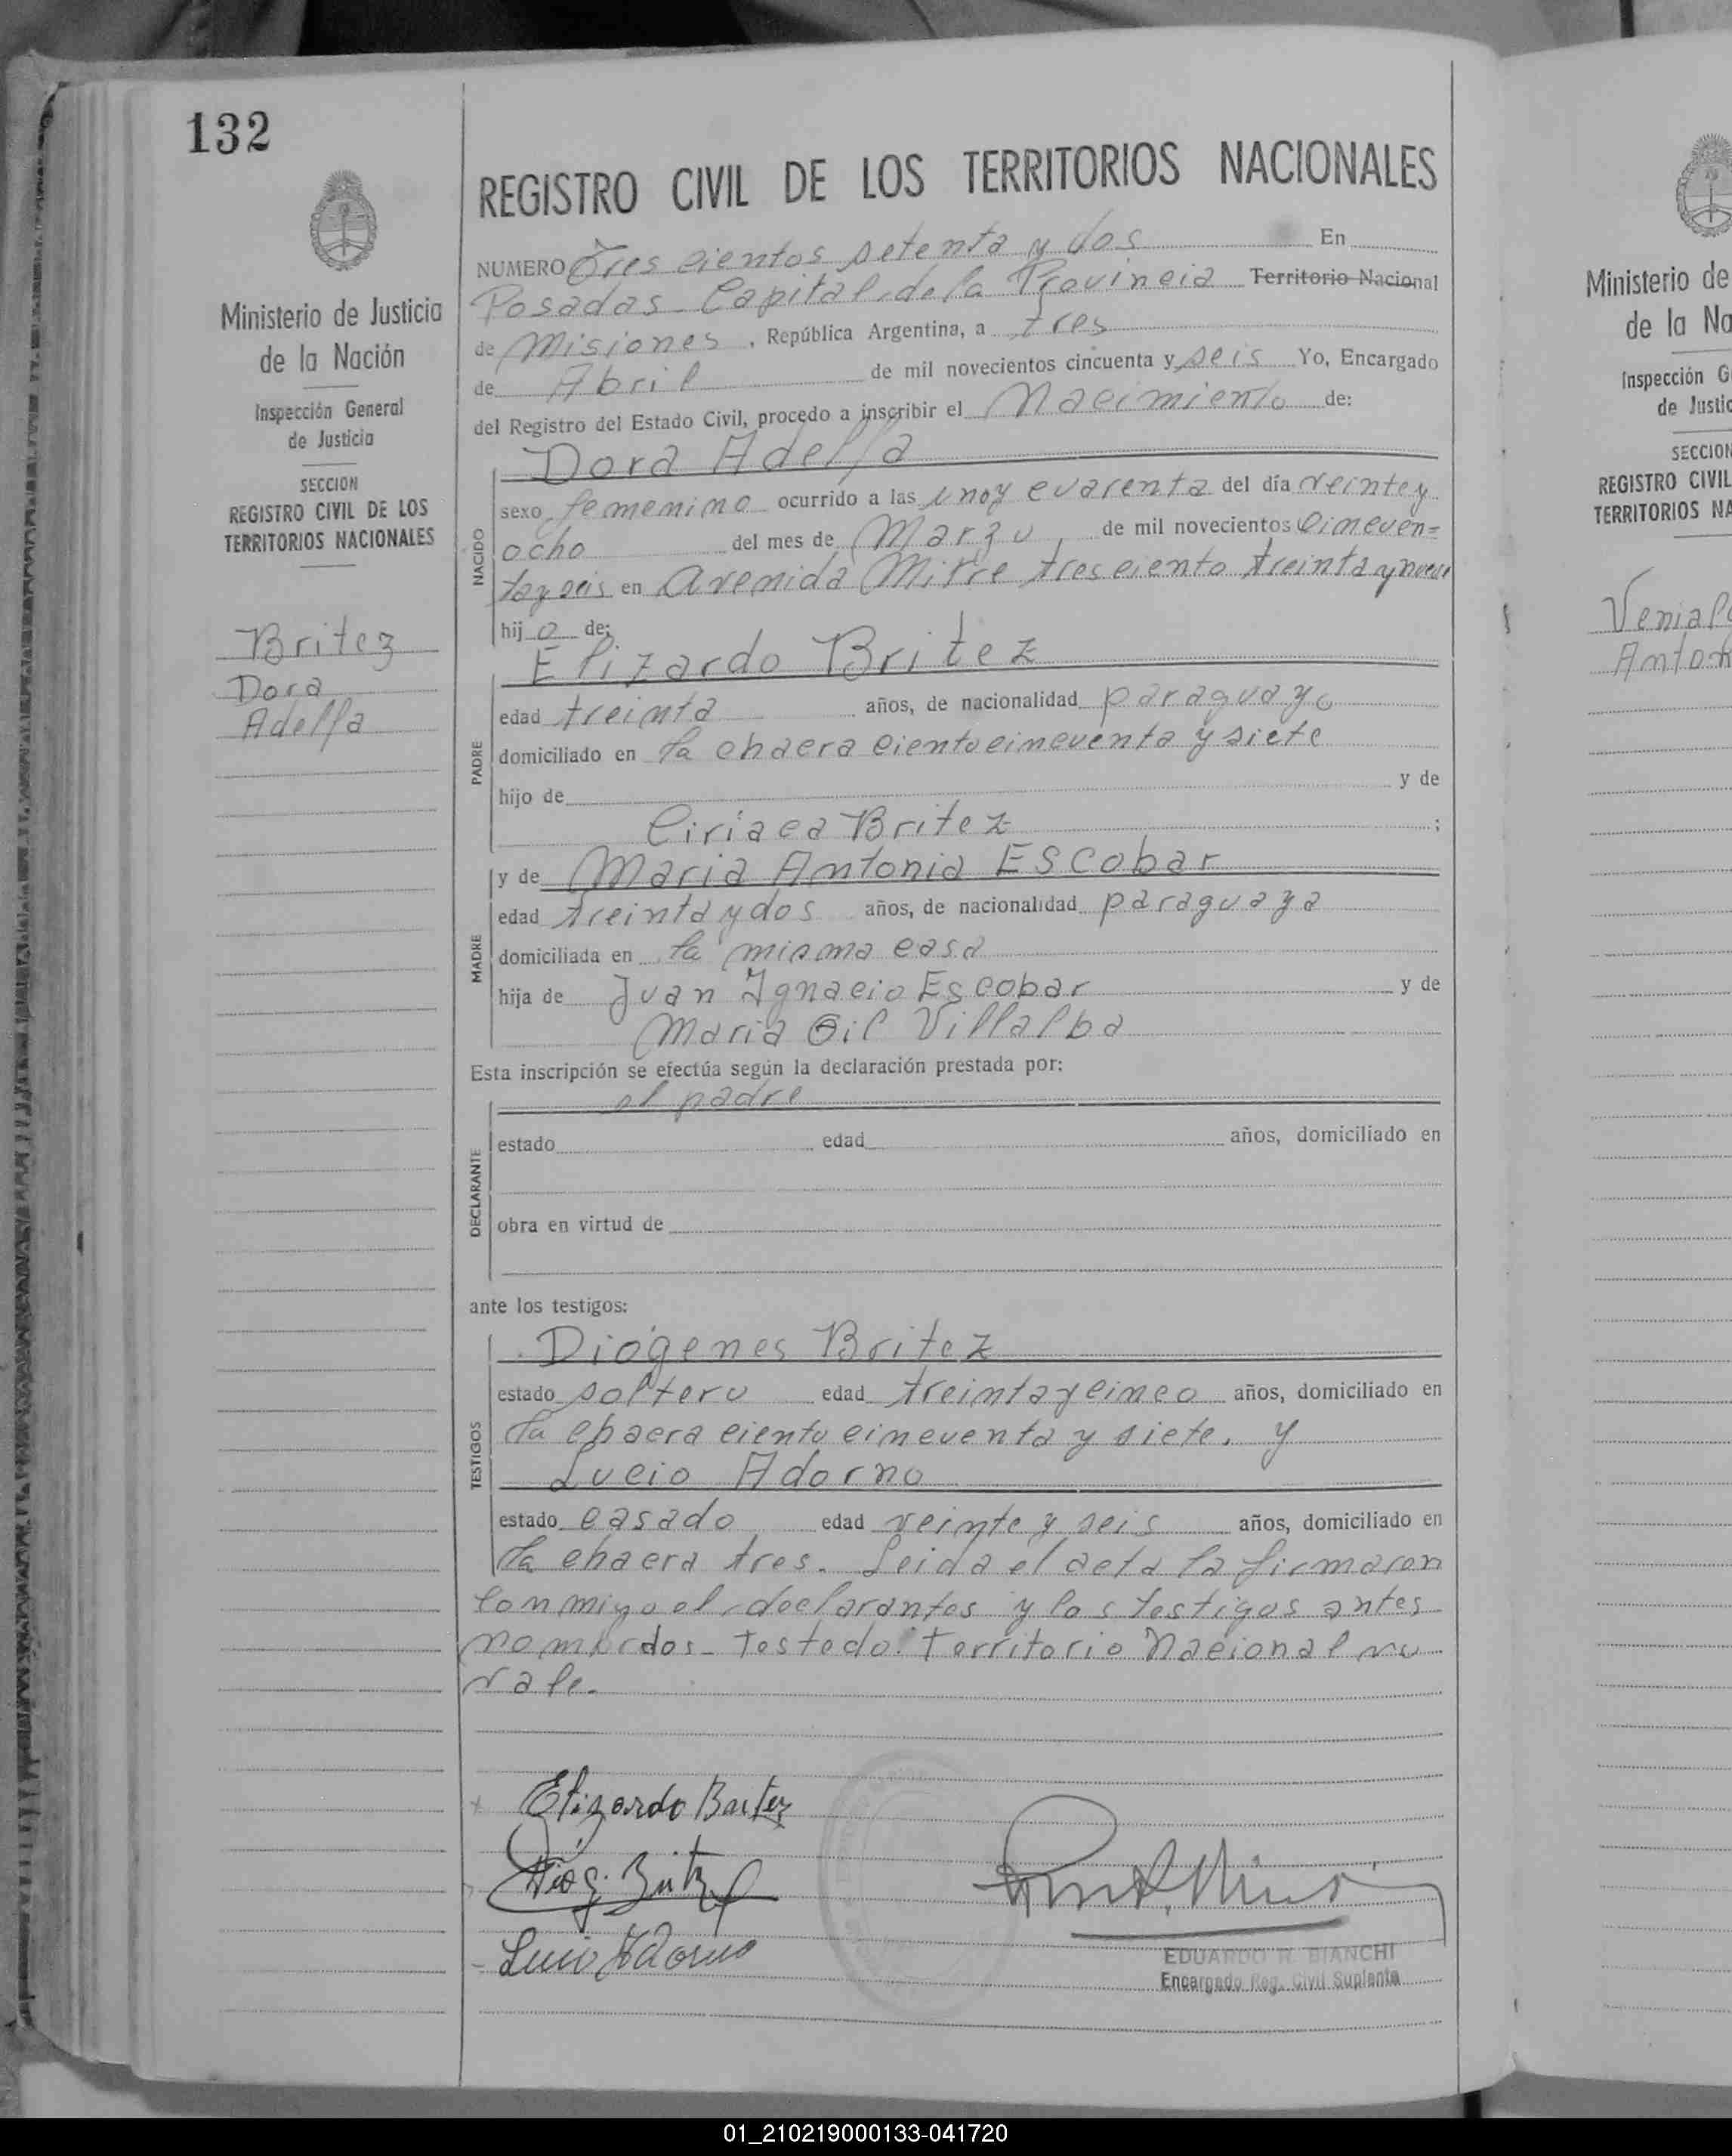 132
Ministerio de Justicia
de la Nación
Inspección General
de Justicia
SECCION
REGISTRO CIVIL DE LOS
TERRITORIOS NACIONALES
Britez
Dora
Adella
REGISTRO CIVIL DE LOS TERRITORIOS NACIONALES
NUMERO Tres cientos setenta y dos En
Posadas Capital de la Provincia Territorio Nacional
de Misiones, República Argentina, a tres
de Abril de mil novecientos cincuenta y seis Yo, Encargado
del Registro del Estado Civil, procedo a inscribir el Nacimiento de:
Dora Adella
NACIDO
sexo femenino ocurrido a las uno y cuarenta del día veinte y
ocho del mes de Marzo de mil novecientos cincuen=
ta y seis en Avenida Mitre tres ciento treinta y nueve
hij a de:
Elizardo Britez
PADRE
edad treinta años, de nacionalidad paraguayo
domiciliado en la chacra ciento cincuenta y siete
hijo de y de
Ciriaca Britez ;
y de Maria Antonia ESCobar
MADRE
edad treinta y dos años, de nacionalidad paraguaya
domiciliada en la misma casa
hija de Juan Ignacio Escobar y de
Maria Gil Villalba
Esta inscripción se efectúa según la declaración prestada por:
el padre
DECLARANTE
estado edad años, domiciliado en
obra en virtud de
ante los testigos:
Diógenes Britez
TESTIGOS
estado soltero edad treinta y cinco años, domiciliado en
la chacra ciento cincuenta y siete. y
Lucio Adorno
estado casado edad veinte y seis años, domiciliado en
la chacra tres. Leida el acta la firmaron
conmigo el declarantes y los testigos antes
nombrdos- Testado: Territorio Nacional no
vale.
Elizardo Britez
Dióg. Britez
Lucio Adorno
EDUARDO R. BIANCHI
Encargado Reg. Civil Suplente
Ministerio de
de la Na
Inspección G
de Justic
SECCION
REGISTRO CIVI
TERRITORIOS NA
Venial
Anto
01_210219000133-041720